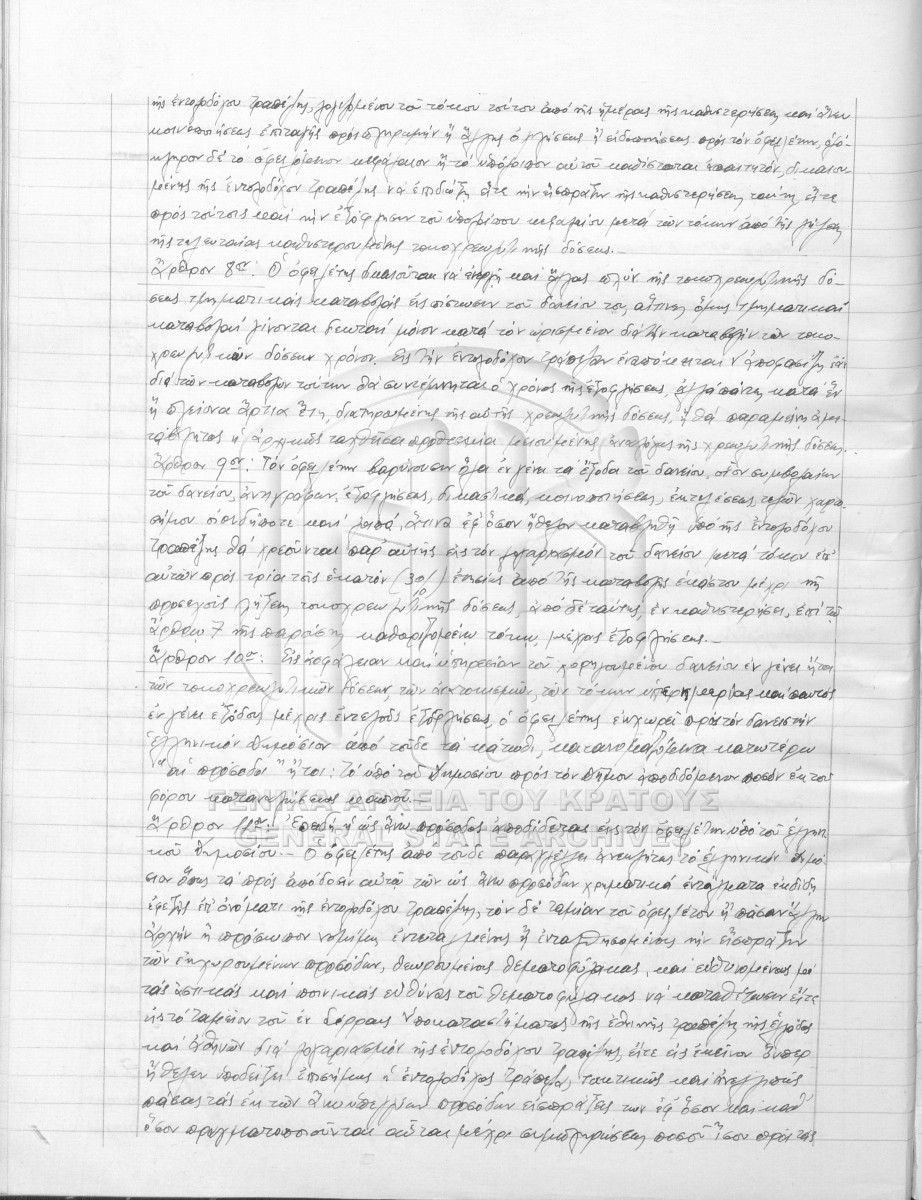 τῆς ἐντολοδόχου Τραπέζης, λογιζομένου τοῦ τόκου τούτου ἀπό τῆς ἡμέρας τῆς καθυστερήσεως καί ἄνευ
κοινοποιήσεως ἐπιταγῆς πρός πληρωμήν ἤ ἄλλης ὀχλήσεως ἤ εἰδοποιήσεως πρός τόν ὀφειλέτην, ὁλό-
κληρον δέ τό ὀφειλόμενον κεφάλαιον ἤ τό ὑπόλοιπον αὐτοῦ καθίσταται ἀπαιτητόν, δικαιου-
μένης τῆς ἐντολοδόχου Τραπέζης νά ἐπιδιώξῃ εἴτε τήν εἴσπραξιν τῆς καθυστερήσεως ταύτης εἴτε
πρός ταύτῃ καί τήν ἐξόφλησιν τοῦ ὑπολοίπου κεφαλαίου μετά τῶν τόκων ἀπό τῆς λήξεως
τῆς τελευταίας καθυστερουμένης τοκοχρεωλυτικῆς δόσεως.-
Ἄρθρον 8ον: Ὁ ὀφειλέτης δικαιοῦται νά ἐνεργῇ καί ἄλλας πλήν τῆς τοκοχρεωλυτικῆς δό-
σεως τμηματικάς καταβολάς εἰς πίστωσιν τοῦ δανείου του, αἵτινες ὅμως τμηματικαί
καταβολαί γίνονται δεκταί μόνον κατά τόν ὡρισμένον διά τήν καταβολήν τῶν τοκο-
χρεωλυτικῶν δόσεων χρόνον. Εἰς τήν ἐντολοδόχον Τράπεζαν ἐναπόκειται ν' ἀποφασίζῃ ἐάν
διά τῶν καταβολῶν τούτων θά συντέμνηται ὁ χρόνος τῆς ἐξοφλήσεως, ἀλλά πάντως κατά ἕν
ἤ πλείονα ἄρτια ἔτη, διατηρουμένης τῆς αὐτῆς χρεωλυτικῆς δόσεως, ἤ θά παραμείνῃ ἀμε-
τάβλητος ἡ ἀρχικῶς ταχθεῖσα προθεσμία μειουμένης ἀναλόγως τῆς χρεωλυτικῆς δόσεως.
Ἄρθρον 9ον: Τόν ὀφειλέτην βαρύνουσιν ὅλα ἐν γένει τά ἔξοδα τοῦ δανείου, οἷον συμβολαίων
τοῦ δανείου, ἀντιγράφων, ἐξοφλήσεως, δικαστικά, κοινοποιήσεως, ἐκτελέσεως, τελῶν χαρτο-
σήμου οἱουδήποτε καί λοιπά, ἅτινα ἐφ' ὅσον ἤθελον καταβληθῇ ὑπό τῆς ἐντολοδόχου
Τραπέζης θά χρεοῦνται παρ' αὐτῆς εἰς τόν λογαριασμόν τοῦ δανείου μετά τόκου ἐπ'
αὐτῶν πρός τρία τοῖς ἑκατόν (3ο/ο) ἐτησίως ἀπό τῆς καταβολῆς ἑκάστου μέχρι τῆς
προσεχοῦς λήξεως τοκοχρεωλυτικῆς δόσεως, ἀπό δέ ταύτης, ἐν καθυστερήσει, ἐπί τῷ
ἄρθρῳ 7 τῆς παρούσης καθοριζομένῳ τόκῳ μέχρις ἐξοφλήσεως.-
Ἄρθρον 10ον: Εἰς ἀσφάλειαν καί ὑπηρεσίαν τοῦ χορηγουμένου δανείου ἐν γένει ἤτοι
τῶν τοκοχρεωλυτικῶν δόσεων τῶν ἀνατοκισμῶν, τῶν τόκων ὑπερημερίας καί παντός
ἐν γένει ἐξόδου μέχρις ἐντελοῦς ἐξοφλήσεως ὁ ὀφειλέτης ἐκχωρεῖ πρός τόν δανειστήν
Ἑλληνικόν Δημόσιον ἀπό τοῦδε τά κάτωθι, κατονομαζόμενα κατωτέρω
αἱ πρόσοδοι ἤτοι: τό ὑπό τοῦ Δημοσίου πρός τόν Δῆμον ἀποδιδόμενον ποσόν ἐκ τοῦ
φόρου καταναλώσεως καπνοῦ.-
Ἄρθρον 11ον: Ἐπειδή ἡ ὡς ἄνω πρόσοδος ἀποδίδεται εἰς τόν ὀφειλέτην ὑπό τοῦ Ἑλλην-
κοῦ Δημοσίου.- Ὁ ὀφειλέτης ἀπό τοῦδε παραγγέλλει ἀνεκκλήτως τό Ἑλληνικόν Δημό-
σιον ὅπως τά πρός ἀπόδοσιν αὐτῷ τῶν ὡς ἄνω προσόδων χρηματικά ἐντάλματα ἐκδίδῃ
ἐφεξῆς ἐπ' ὀνόματι τῆς ἐντολοδόχου Τραπέζης, τόν δέ ταμίαν τοῦ ὀφειλέτου ἤ πᾶσαν ἄλλην
ἀρχήν ἤ πρόσωπον νομίμως ἐντεταλμένης ἤ ἐνταλθησομένης τήν εἴσπραξιν
τῶν ἐκχωρουμένων προσόδων, θεωρουμένους θεματοφύλακας, καί εὐθυνομένους μέ
τάς ἀστικάς καί ποινικάς εὐθύνας τοῦ θεματοφύλακος νά καταθέτωσιν εἴτε
εἰς τό ταμεῖον τοῦ ἐν Σέρραις ὑποκαταστήματος τῆς Ἐθνικῆς Τραπέζης τῆς Ἑλλάδος
καί Ἀθηνῶν διά λογαριασμόν τῆς ἐντολοδόχου Τραπέζης, εἴτε εἰς ἐκεῖνον ὅνπερ
ἤθελεν ὑποδείξει ἐπισήμως ἡ ἐντολοδόχος Τράπεζα, τακτικῶς καί ἀνελλιπῶς
πάσας τάς ἐκ τῶν ἄνω προσόδων εἰσπράξεις των ἐφ' ὅσον καί καθ'
ὅσον πραγματοποιοῦνται αὗται μέχρι συμπληρώσεως ποσοῦ ἴσου πρός τάς
ΓΕΝΙΚΑ ΑΡΧΕΙΑ ΤΟΥ ΚΡΑΤΟΥΣ
GENERAL STATE ARCHIVES